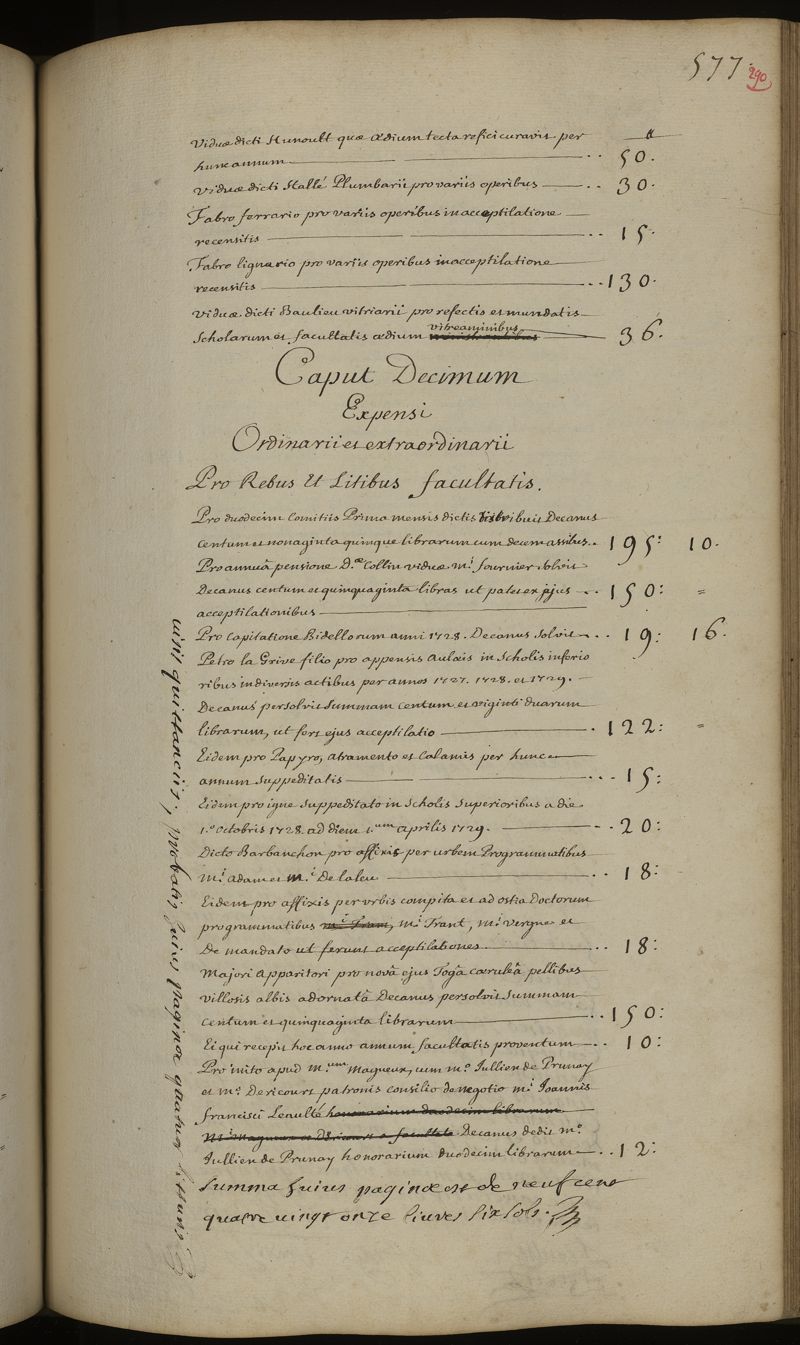 577.
290
Viduæ dicti Hunoult quæ ædium tecta refici curavit per
hunc annum 50.
Viduæ dicti Hallé Plumbarii pro variis operibus 30.
Fabro ferrario pro variis operibus in acceptilatione
recensitis 15.
Fabro lignario pro variis operibus in acceptilatione
recensitis 130.
Viduæ dicti Baulieu vitriarii pro refectis et mundatis
Scholarum et facultatis ædium vitreaminibus 36.
Caput Decimum
Expensi
Ordinarii et extraordinarii
Pro Rebus Et Litibus facultatis.
Pro duodecim Comitiis Prima mensis dictis distribuit Decanus
centum et nonaginta quinque librarum cum decem assibus. 195: 10.
Pro annuâ pensione D.æ Collin viduæ M.i fournier solvit
Decanus centum et quinquaginta libras ut patet ex ejus 150: =
acceptilationibus
Pro Capitatione Bidellorum anni 1728. Decanus solvit 19: 16.
Petro la Grive filio pro appensis Aulæis in Scholis inferio
ribus in diversis actibus per annos 1727. 1728. et 1729.
Decanus persolvit summam centum et viginti duarum
librarum, ut fert ejus acceptilatio 122: =
Eidem pro Papyro, atramento et Calamis per hunc
annum suppeditatis 15:
Eidem pro igne suppeditato in Scholis Superioribus a die
1.a Octobris 1728. ad diem 1.am aprilis 1729. 20:
Dicto Barbanchon pro affixis per urbem Programmatibus
M.i Adam et M.i De laleu 18:
Eidem pro affixis per urbis compita et ad ostia Doctorum
programmatibus M.i Fram, M.i Frant, M.i Vergne et
De mandato ut ferunt acceptilationes 18:
Majori Apparitori pro novâ ejus Togâ cæruleâ pellibus
villosis albis adornatâ Decanus persolvit summam
centum et quinquaginta librarum 150:
Ei qui recepit hoc anno annum facultatis proventum 10:
Pro inito apud M.um Magueux, cum M.o Jullien de Prunay
et M.o Dericourt patronis consilio de negotio M.i Joannis
Francisci Leaulté honorarium duodecim librarum
Decanus dedit M.o
Jullien de Prunay honorarium duodecim librarum 12:
Summa hujus paginæ est de neuf cent
quatre vingt onze livres six sols.
visis quittanciis, probatis hujus paginæ quatuor lituris